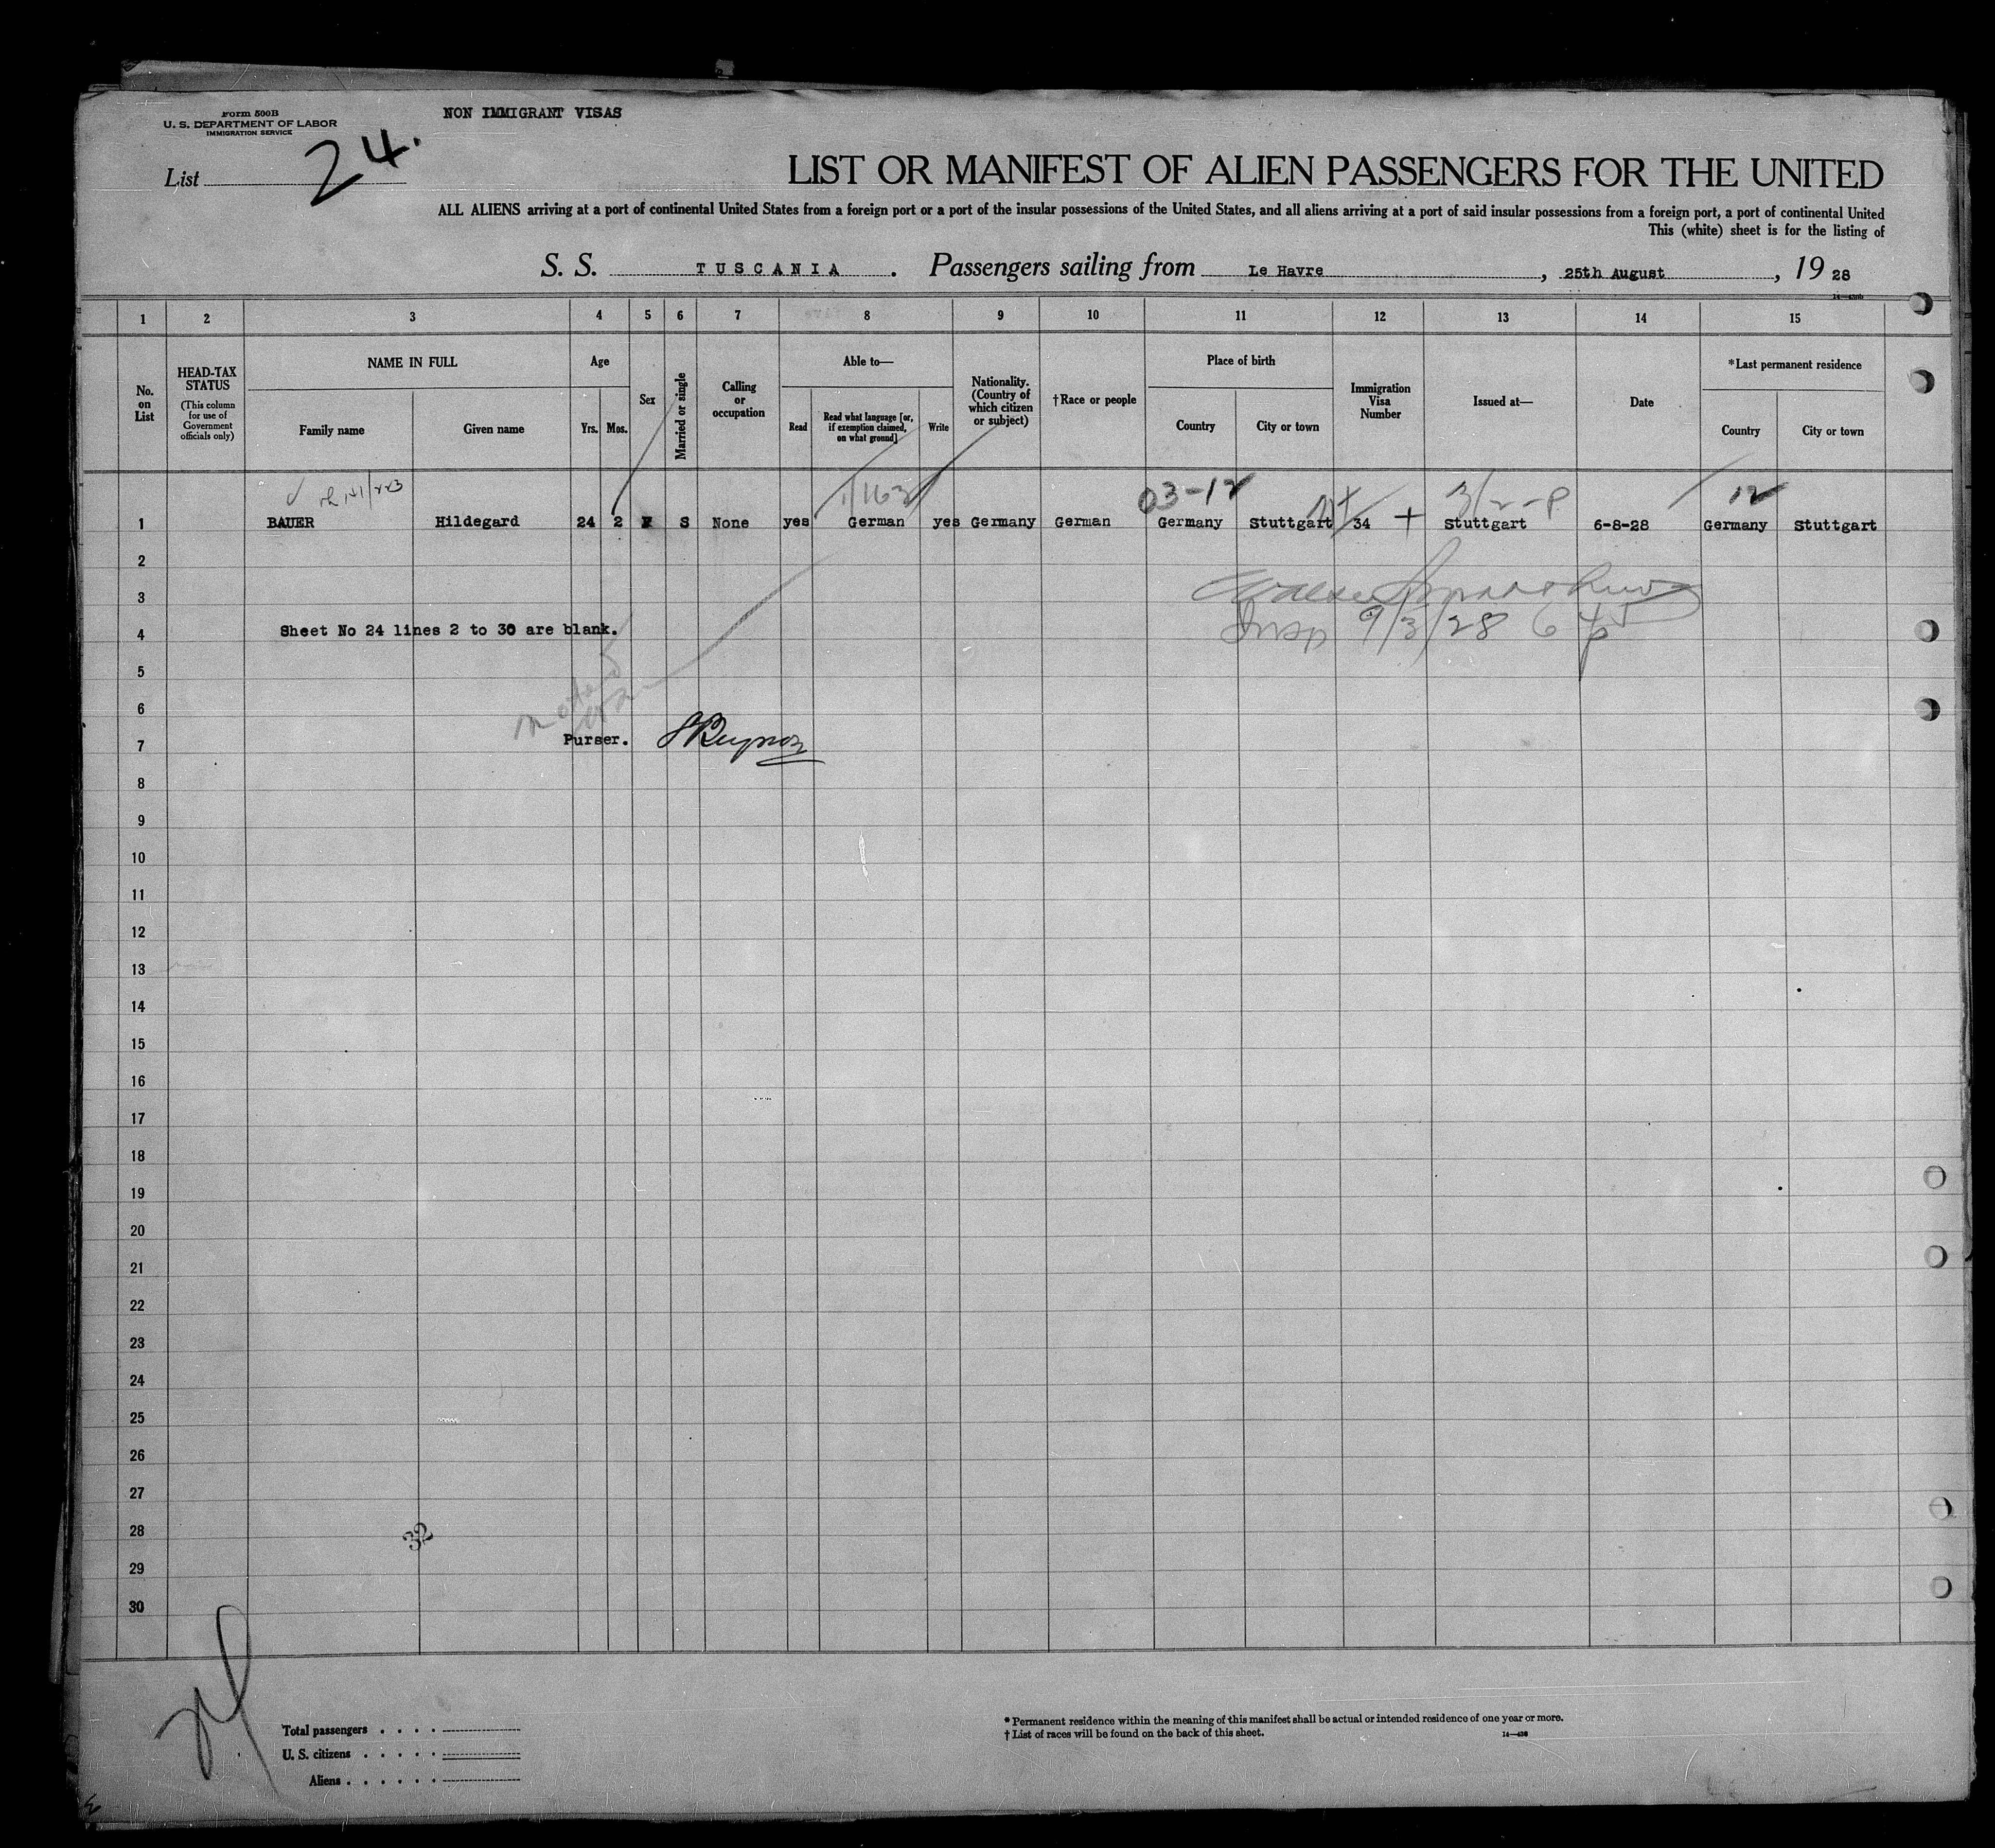 Form 500B
U. S. DEPARTMENT OF LABOR
IMMIGRATION SERVICE
NON IMMIGRANT VISAS
List 24.
LIST OR MANIFEST OF ALIEN PASSENGERS FOR THE UNITED
ALL ALIENS arriving at a port of continental United States from a foreign port or a port of the insular possessions of the United States, and all aliens arriving at a port of said insular possessions from a foreign port, a port of continental United
This (white) sheet is for the listing of
S. S. TUSCANIA. Passengers sailing from Le Havre, 25th August, 19 28
1 2 3 4 5 6 7 8 9 10 11 12 13 14 15
No. on List
HEAD-TAX STATUS
(This column for use of Government officials only)
NAME IN FULL
Family name
Given name
Age
Yrs.
Mos.
Sex
Married or single
Calling or occupation
Able to—
Read
Read what language [or, if exemption claimed, on what ground]
Write
Nationality. (Country of which citizen or subject)
†Race or people
Place of birth
Country
City or town
Immigration Visa Number
Issued at—
Date
*Last permanent residence
Country
City or town
03-12
3/2-P
12
1 BAUER Hildegard 24 2 F S None yes German yes Germany German Germany Stuttgart 34 Stuttgart 6-8-28 Germany Stuttgart
2
3
Insp 9/3/28
4 Sheet No 24 lines 2 to 30 are blank.
5
6
7 Purser.
8
9
10
11
12
13
14
15
16
17
18
19
20
21
22
23
24
25
26
27
28
32
29
30
Total passengers . . . .
U. S. citizens . . . . .
Aliens . . . . . .
* Permanent residence within the meaning of this manifest shall be actual or intended residence of one year or more.
† List of races will be found on the back of this sheet.
14—430